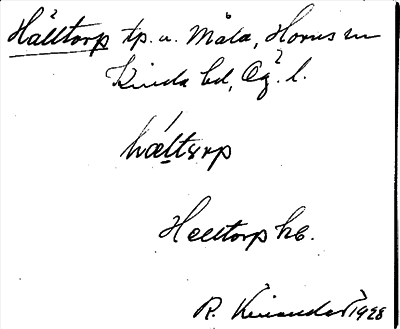 Hälltorp tp. u. Måla, Horns sn
Kinda hd, Ög. l.
hæ̀ltɤrp
Helltorp hb.
R. Kinander 1928